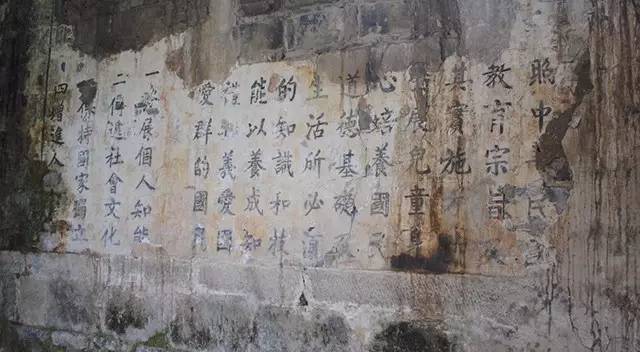 照中民
教育宗旨及
其實施
發展兒童身
心培養國民
道德基礎及
生活所必須
的知識和技
能以養成知
禮義愛國
愛群的國民
一發展個人知能
二促進社會文化
保持國家獨立
四增進人